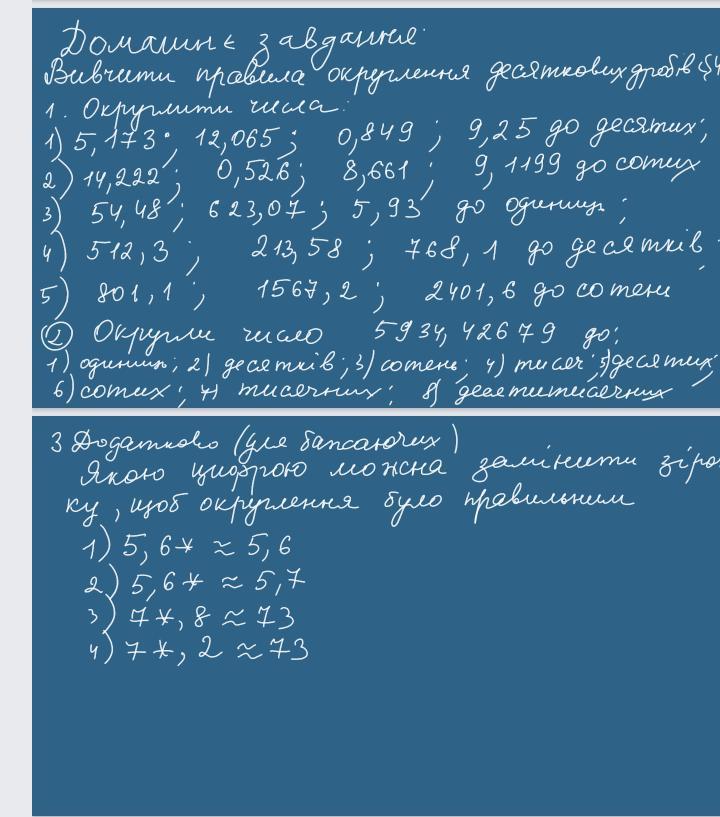 Домашнє завдання.
Вивчити правила округлення десяткових дробів §4
1. Округлити числа:
1) 5,173; 12,065; 0,849; 9,25 до десятих;
2) 14,222; 0,526; 8,661; 9,1199 до сотих
3) 54,48; 623,07; 5,93 до одиниць;
4) 512,3; 213,58; 768,1 до десятків
5) 801,1; 1567,2; 2401,6 до сотень
2 Округли число 5934,42679 до:
1) одиниць; 2) десятків; 3) сотень; 4) тисяч; 5) десятих;
6) сотих; 7) тисячних; 8) десятитисячних
3 Додатково (для бажаючих)
Якою цифрою можна замінити зіроч
ку, щоб округлення було правильним
1) 5,6* ≈ 5,6
2) 5,6* ≈ 5,7
3) 7*,8 ≈ 73
4) 7*,2 ≈ 73